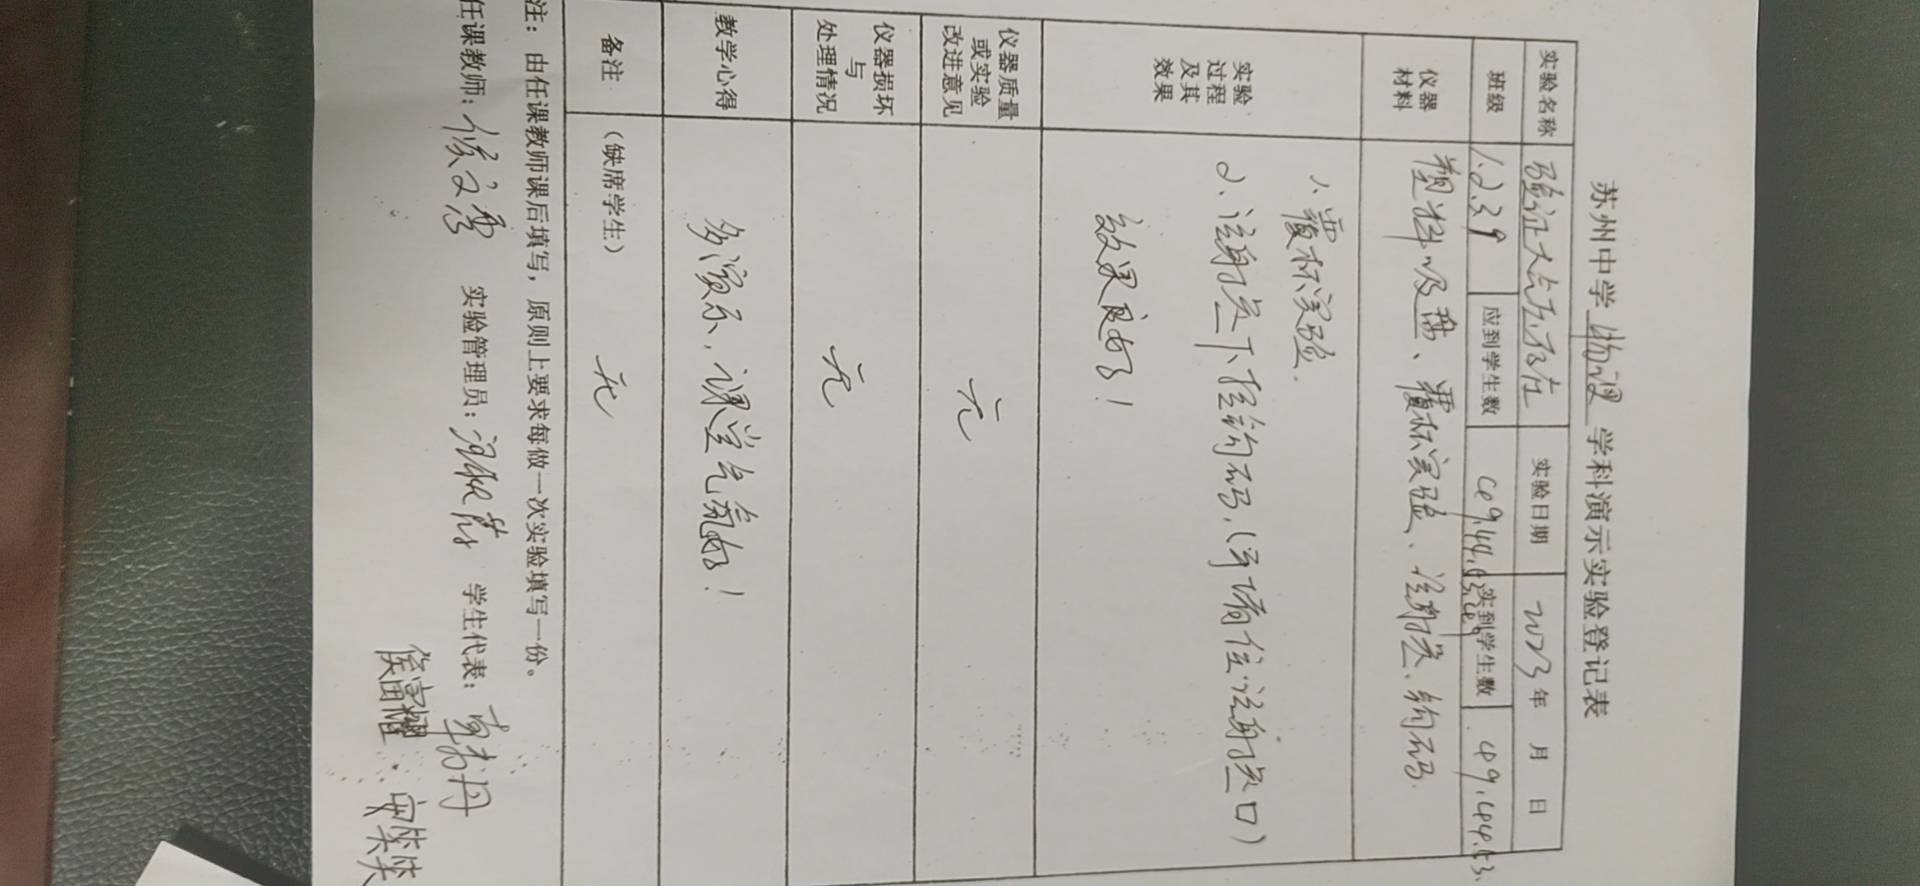 苏州中学 物理 学科演示实验登记表
实验名称 验证大气压存在 实验日期 2023年 月 日
班级 1.2.3.9 应到学生数 49.44.53.49 实到学生数 49.44.53.
仪器材料 塑料吸盘、覆杯实验、注射器、钩码.
实验过程及其效果 1、覆杯实验.
2、注射器下挂钩码.(手堵住注射器口)
效果良好!
仪器质量或实验改进意见 无
仪器损坏与处理情况 无
教学心得 多演示,课堂气氛好!
备注 (缺席学生) 无
注:由任课教师课后填写,原则上要求每做一次实验填写一份。
任课教师: 实验管理员: 学生代表: